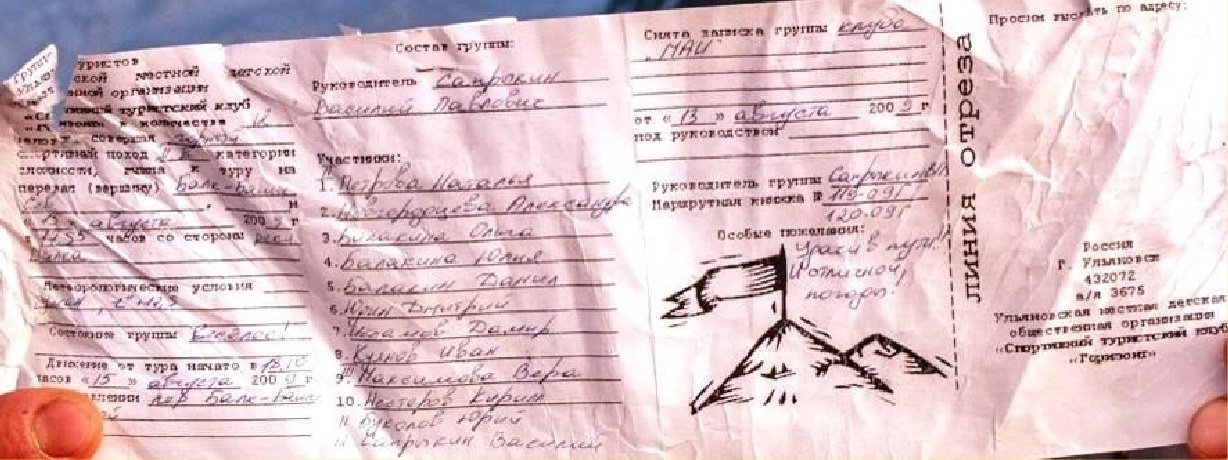 уристов
ской местной детской
нной организации
туристский клуб
в количестве 12
человек, совершая
спортивный поход категории
сложности, вышла к туру на
перевал (вершину) Балк-Баши
" 15 " августа 2009
в 11.55 часов со стороны реки
Балка
Метеорологические условия
Состояние группы Бодрое!
Движение от тура начато в 13.10
часов " 15 " августа 2009 г
пер Балк-Баши
Состав группы:
Руководитель Сапрыкин
Василий Павлович
Участники:
1. Петрова Наталья
2. Новгородцева Александра
3. Балакина Ольга
4. Балакина Юлия
5. Балакин Данил
6. Юдин Дмитрий
7. Дамир
8. Иван
9. Максимова Вера
10. Нестеров Кирилл
11. Буколов Юрий
12. Сапрыкин Василий
Снята записка группы клуба
"МАИ"
от « 13 » августа 2009 г
под руководством
Руководитель группы Сапрыкин В.П.
Маршрутная книжка № 119-09Г
120-09Г
Особые пожелания:
Удачи в пути!
И отличной
погоды!
линия отреза
Просим выслать по адресу:
Россия
г. Ульяновск
432072
а/я 3675
Ульяновская местная детская
общественная организация
«Спортивный туристский клуб
«Горизонт»